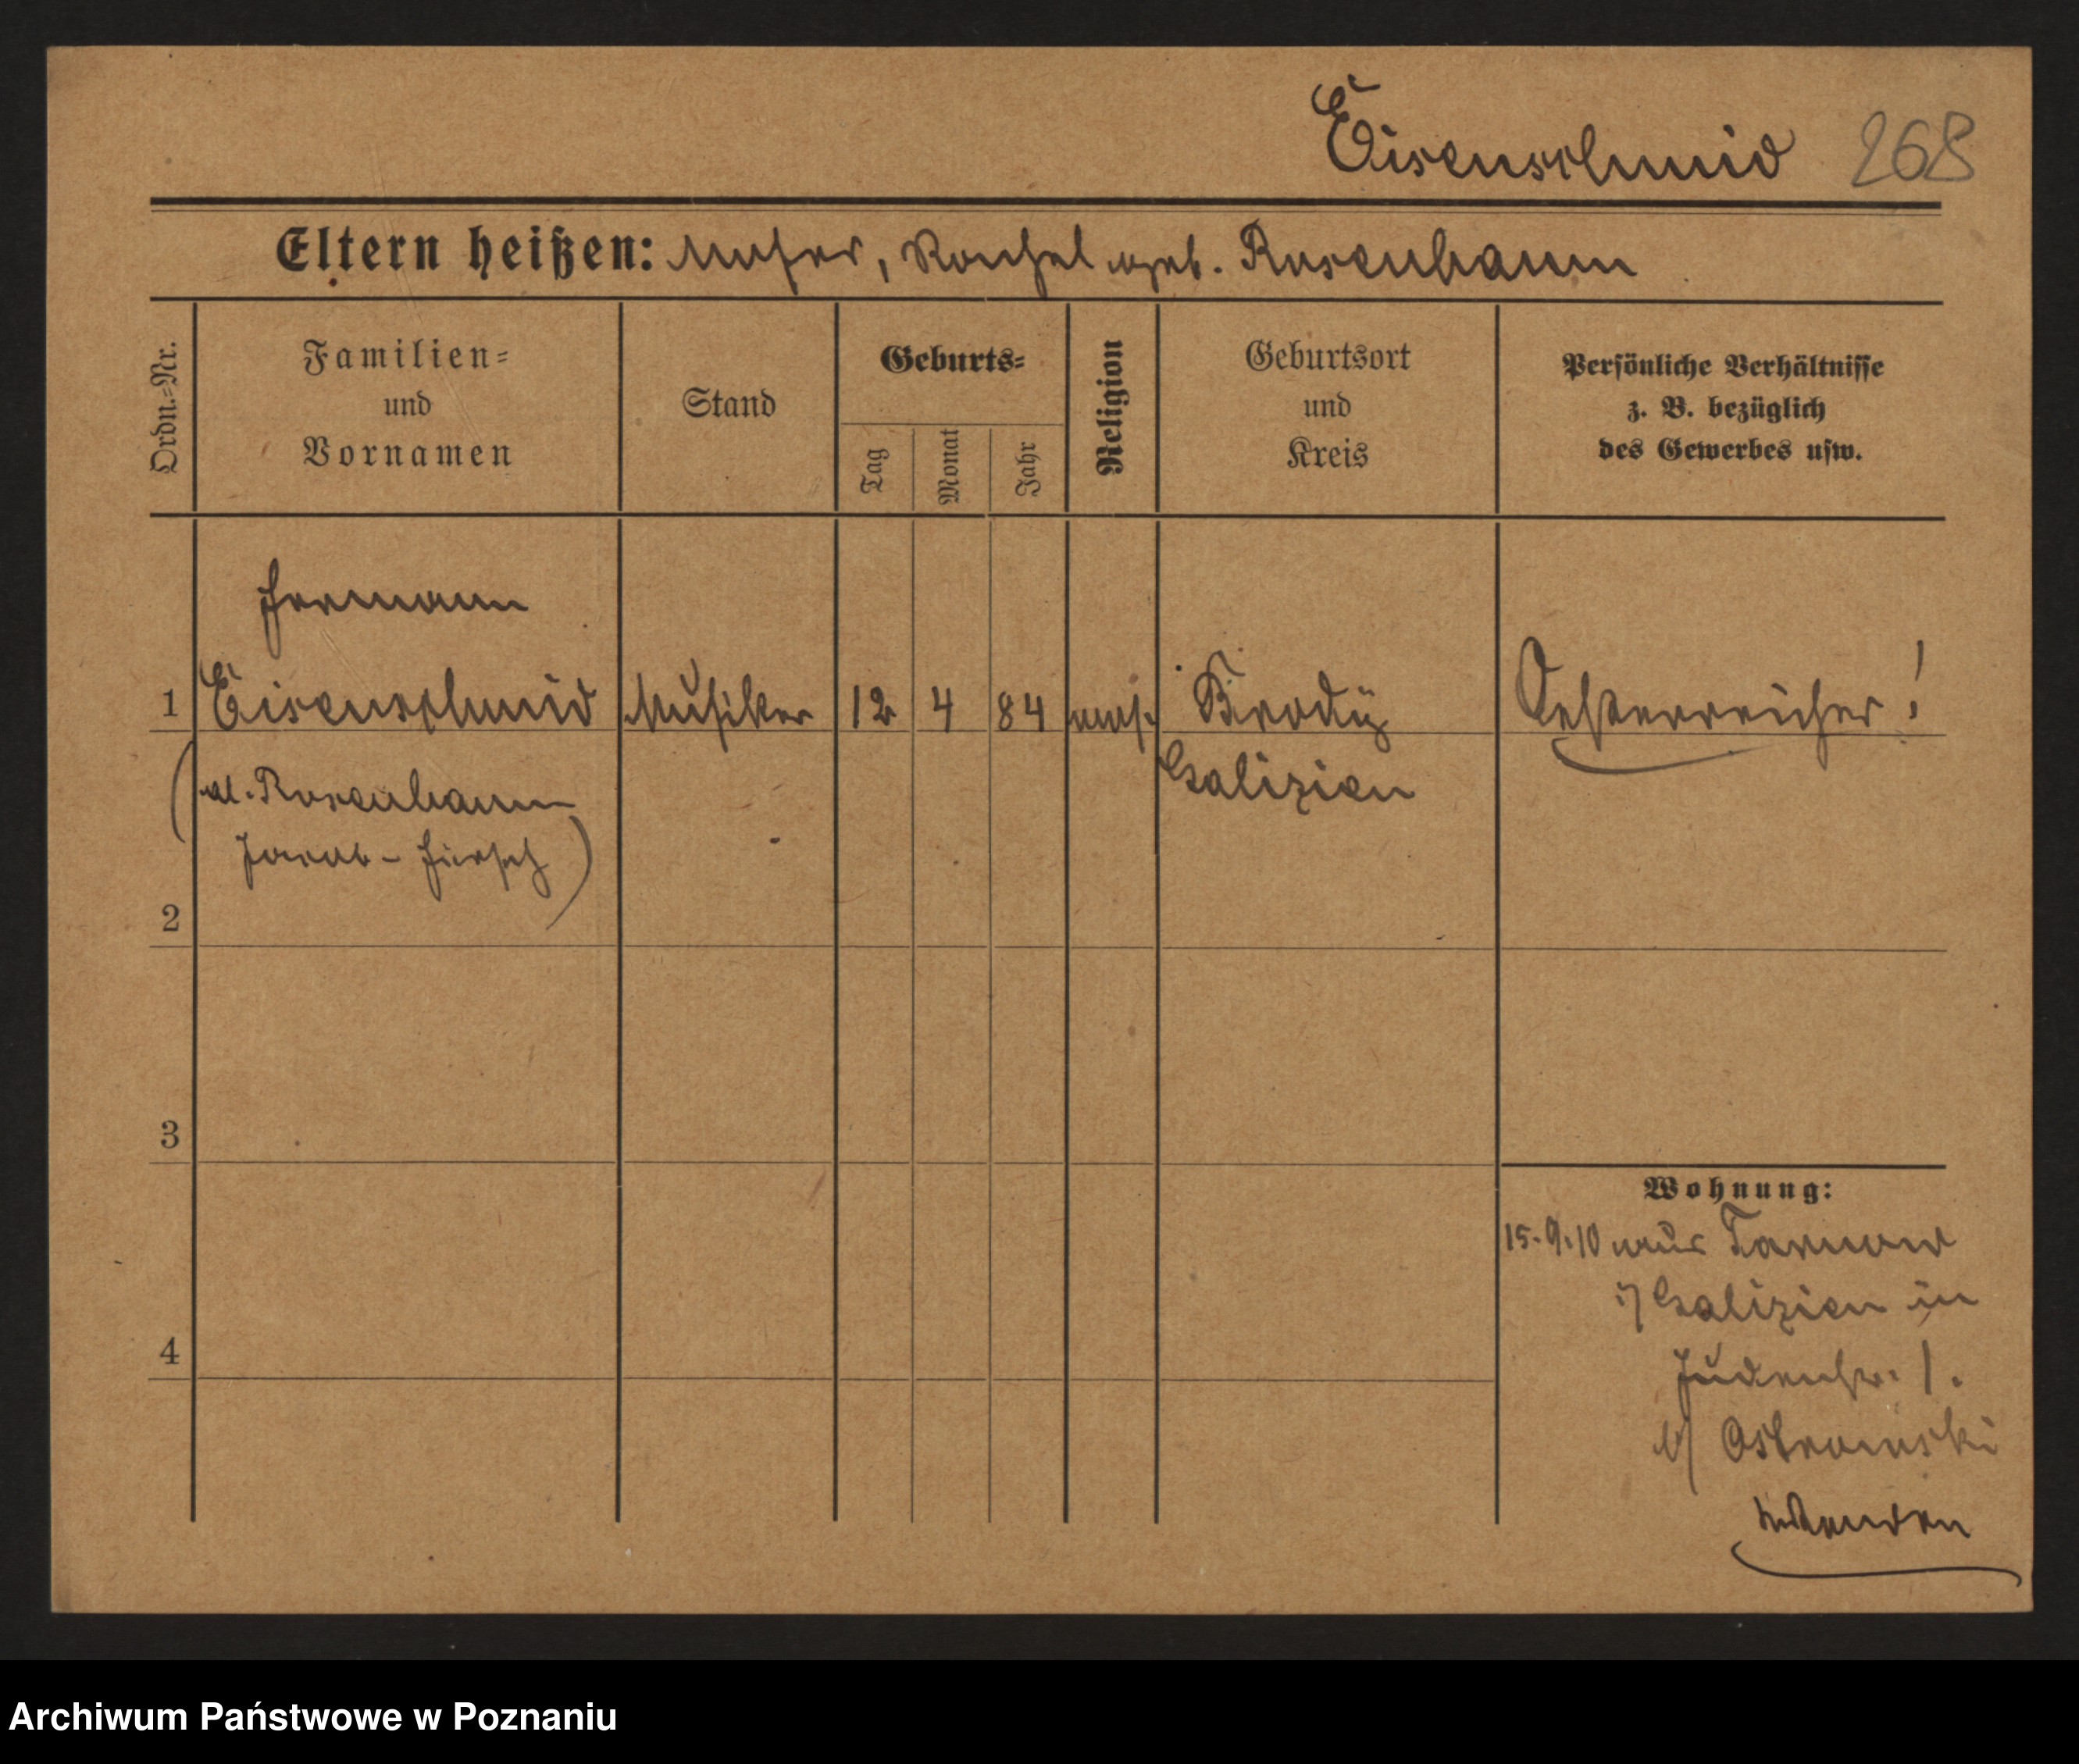 Eisenschmid 268
Eltern heißen: Moses, Rachel geb. Rosenbaum
Ordn.=Nr.
Familien=
und
Vornamen
Stand
Geburts=
Tag
Monat
Jahr
Religion
Geburtsort
und
Kreis
Persönliche Verhältnisse
z. B. bezüglich
des Gewerbes usw.
Hermann
1 Eisenschmid Musiker 12 4 84 mos. Brody Oesterreicher!
(al. Rosenbaum Galizien
Jacob-Hirsch)
2
3
4
Wohnung:
15.9.10 aus Tarnow
i/Galizien in
Judenstr. 1.
b/ Ostrowski
Archiwum Państwowe w Poznaniu